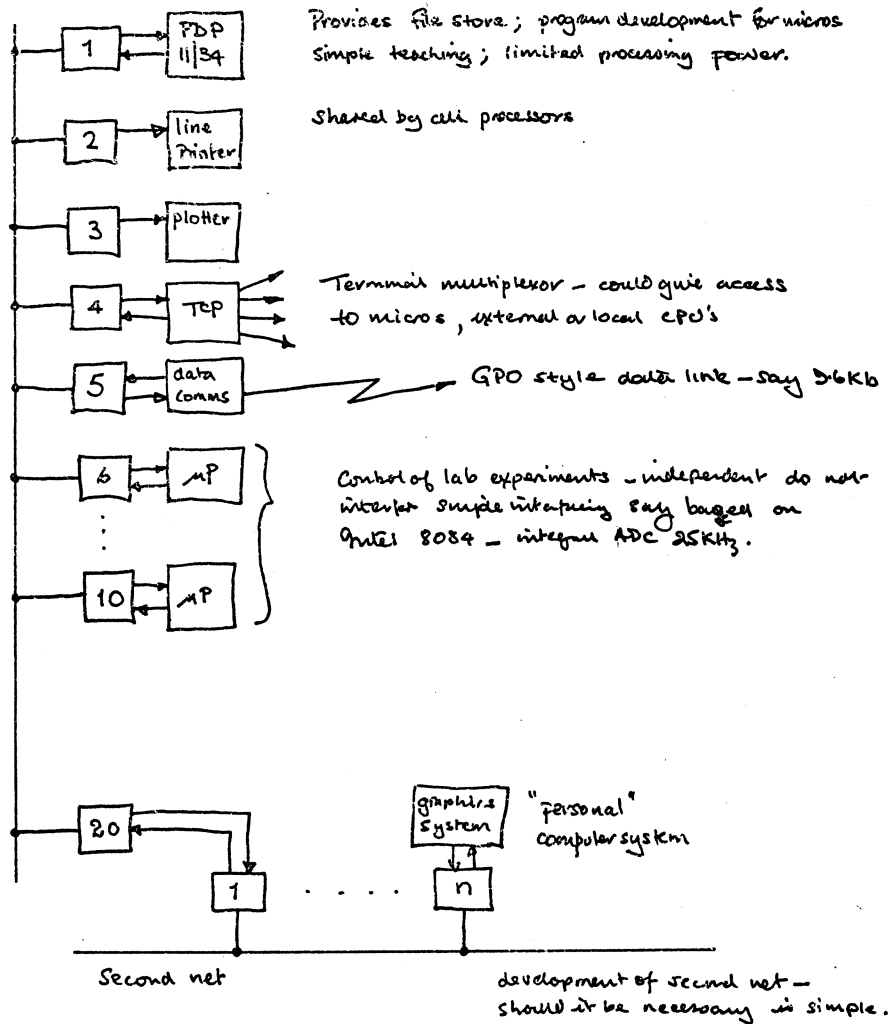 1
PDP
11/34
Provides file store; program development for micros
Simple teaching; limited processing power.
2
line
Printer
Shared by all processors
3
plotter
4
TCP
Terminal multiplexor - could give access
to micros, external or local CPU's
5
data
comms
GPO style data link - say 9.6Kb
6
μP
Control of lab experiments - independent do not
interfer simple interfacing say based on
Intel 8084 - integral ADC 25KHz.
10
μP
20
graphics
system
"personal"
computer system
1
n
Second net
development of second net -
should it be necessary is simple.